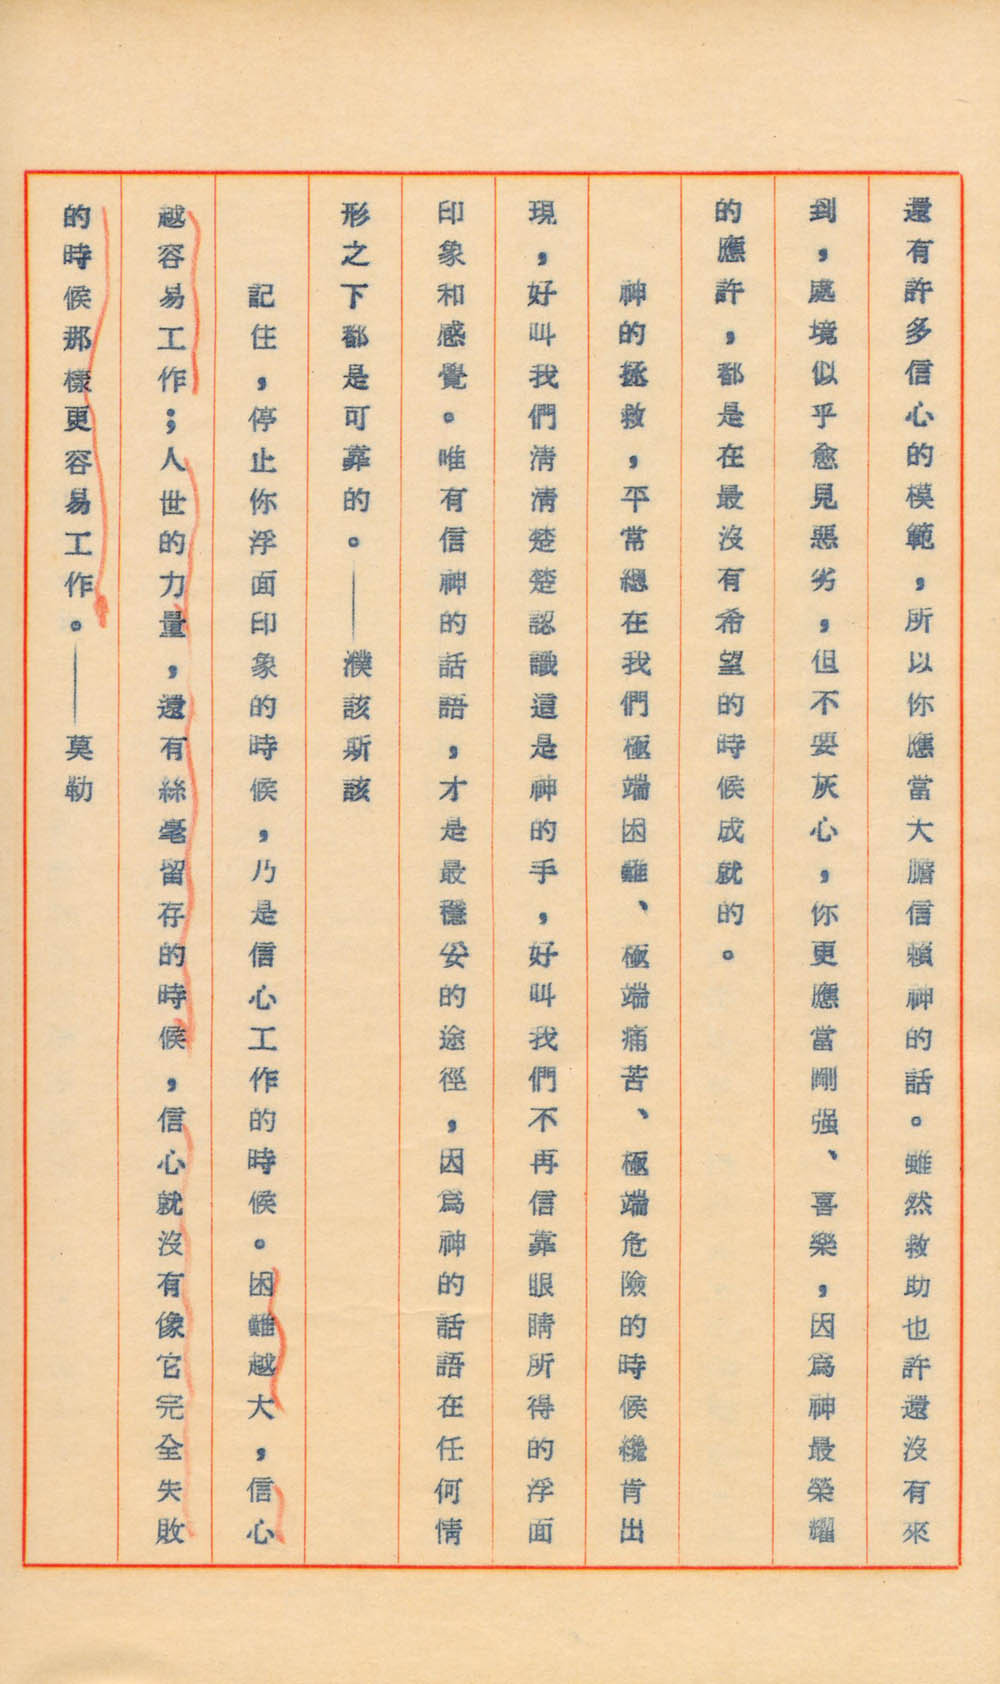 還有許多信心的模範，所以你應當大膽信賴神的話。雖然救助也許還沒有來
到，處境似乎愈見惡劣，但不要灰心，你更應當剛强、喜樂，因爲神最榮耀
的應許，都是在最沒有希望的時候成就的。
神的拯救，平常總在我們極端困難、極端痛苦、極端危險的時候纔肯出
現，好叫我們淸淸楚楚認識這是神的手，好叫我們不再信靠眼睛所得的浮面
印象和感覺。唯有信神的話語，才是最穩妥的途徑，因爲神的話語在任何情
形之下都是可靠的。——濮該斯該
記住，停止你浮面印象的時候，乃是信心工作的時候。困難越大，信心
越容易工作；人世的力量，還有絲毫留存的時候，信心就沒有像它完全失敗
的時候那樣更容易工作。——莫勒